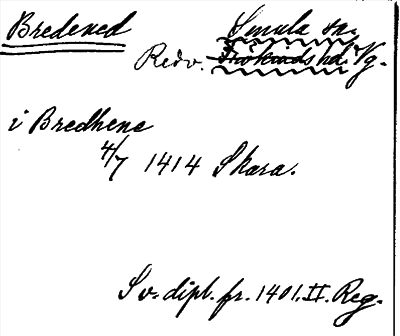 Bredened Smula sn.
Redv. Frökinds hd. Vg.
i Bredhene
4/7 1414 Skara.
Sv. dipl. fr. 1401. II. Reg.